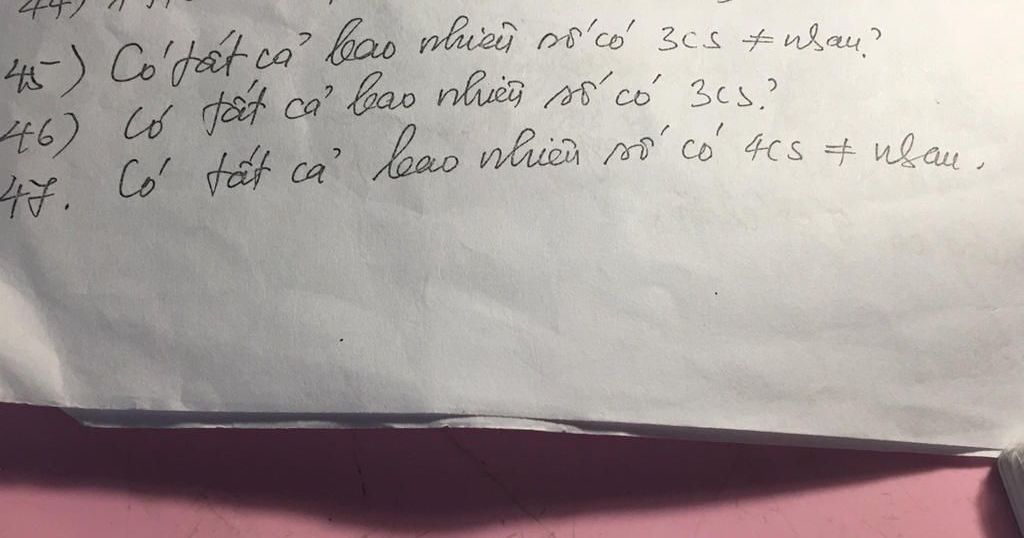 44)
45) Có tất cả bao nhiêu số có 3cs ≠ nhau?
46) Có tất cả bao nhiêu số có 3cs?
47. Có tất cả bao nhiêu số có 4cs ≠ nhau.